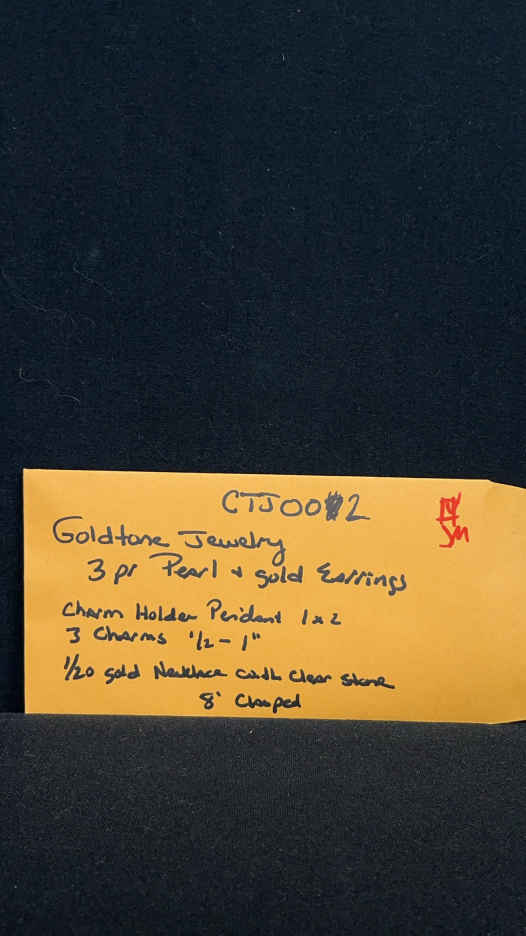 CTJ002
Goldtone Jewelry
3 pr Pearl + gold Earrings
Charm Holder Pendant 1x2
3 Charms 1/2 - 1"
1/20 gold Necklace with Clear stone
8" Clasped